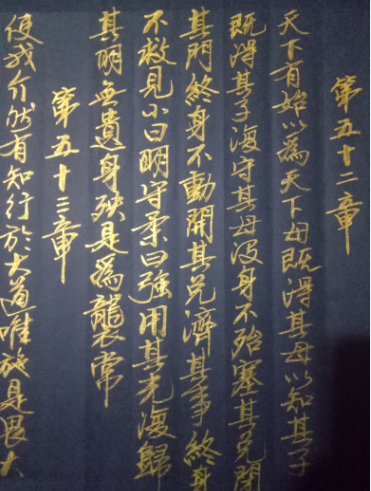 第五十二章
天下有始以為天下母既得其母以知其子
既得其子復守其母没身不殆塞其兑閉
其門終身不動開其兑濟其事終身
不救見小曰明守柔曰強用其光復歸
其明無遺身殃是為襲常
第五十三章
使我介然有知行於大道唯施是畏大